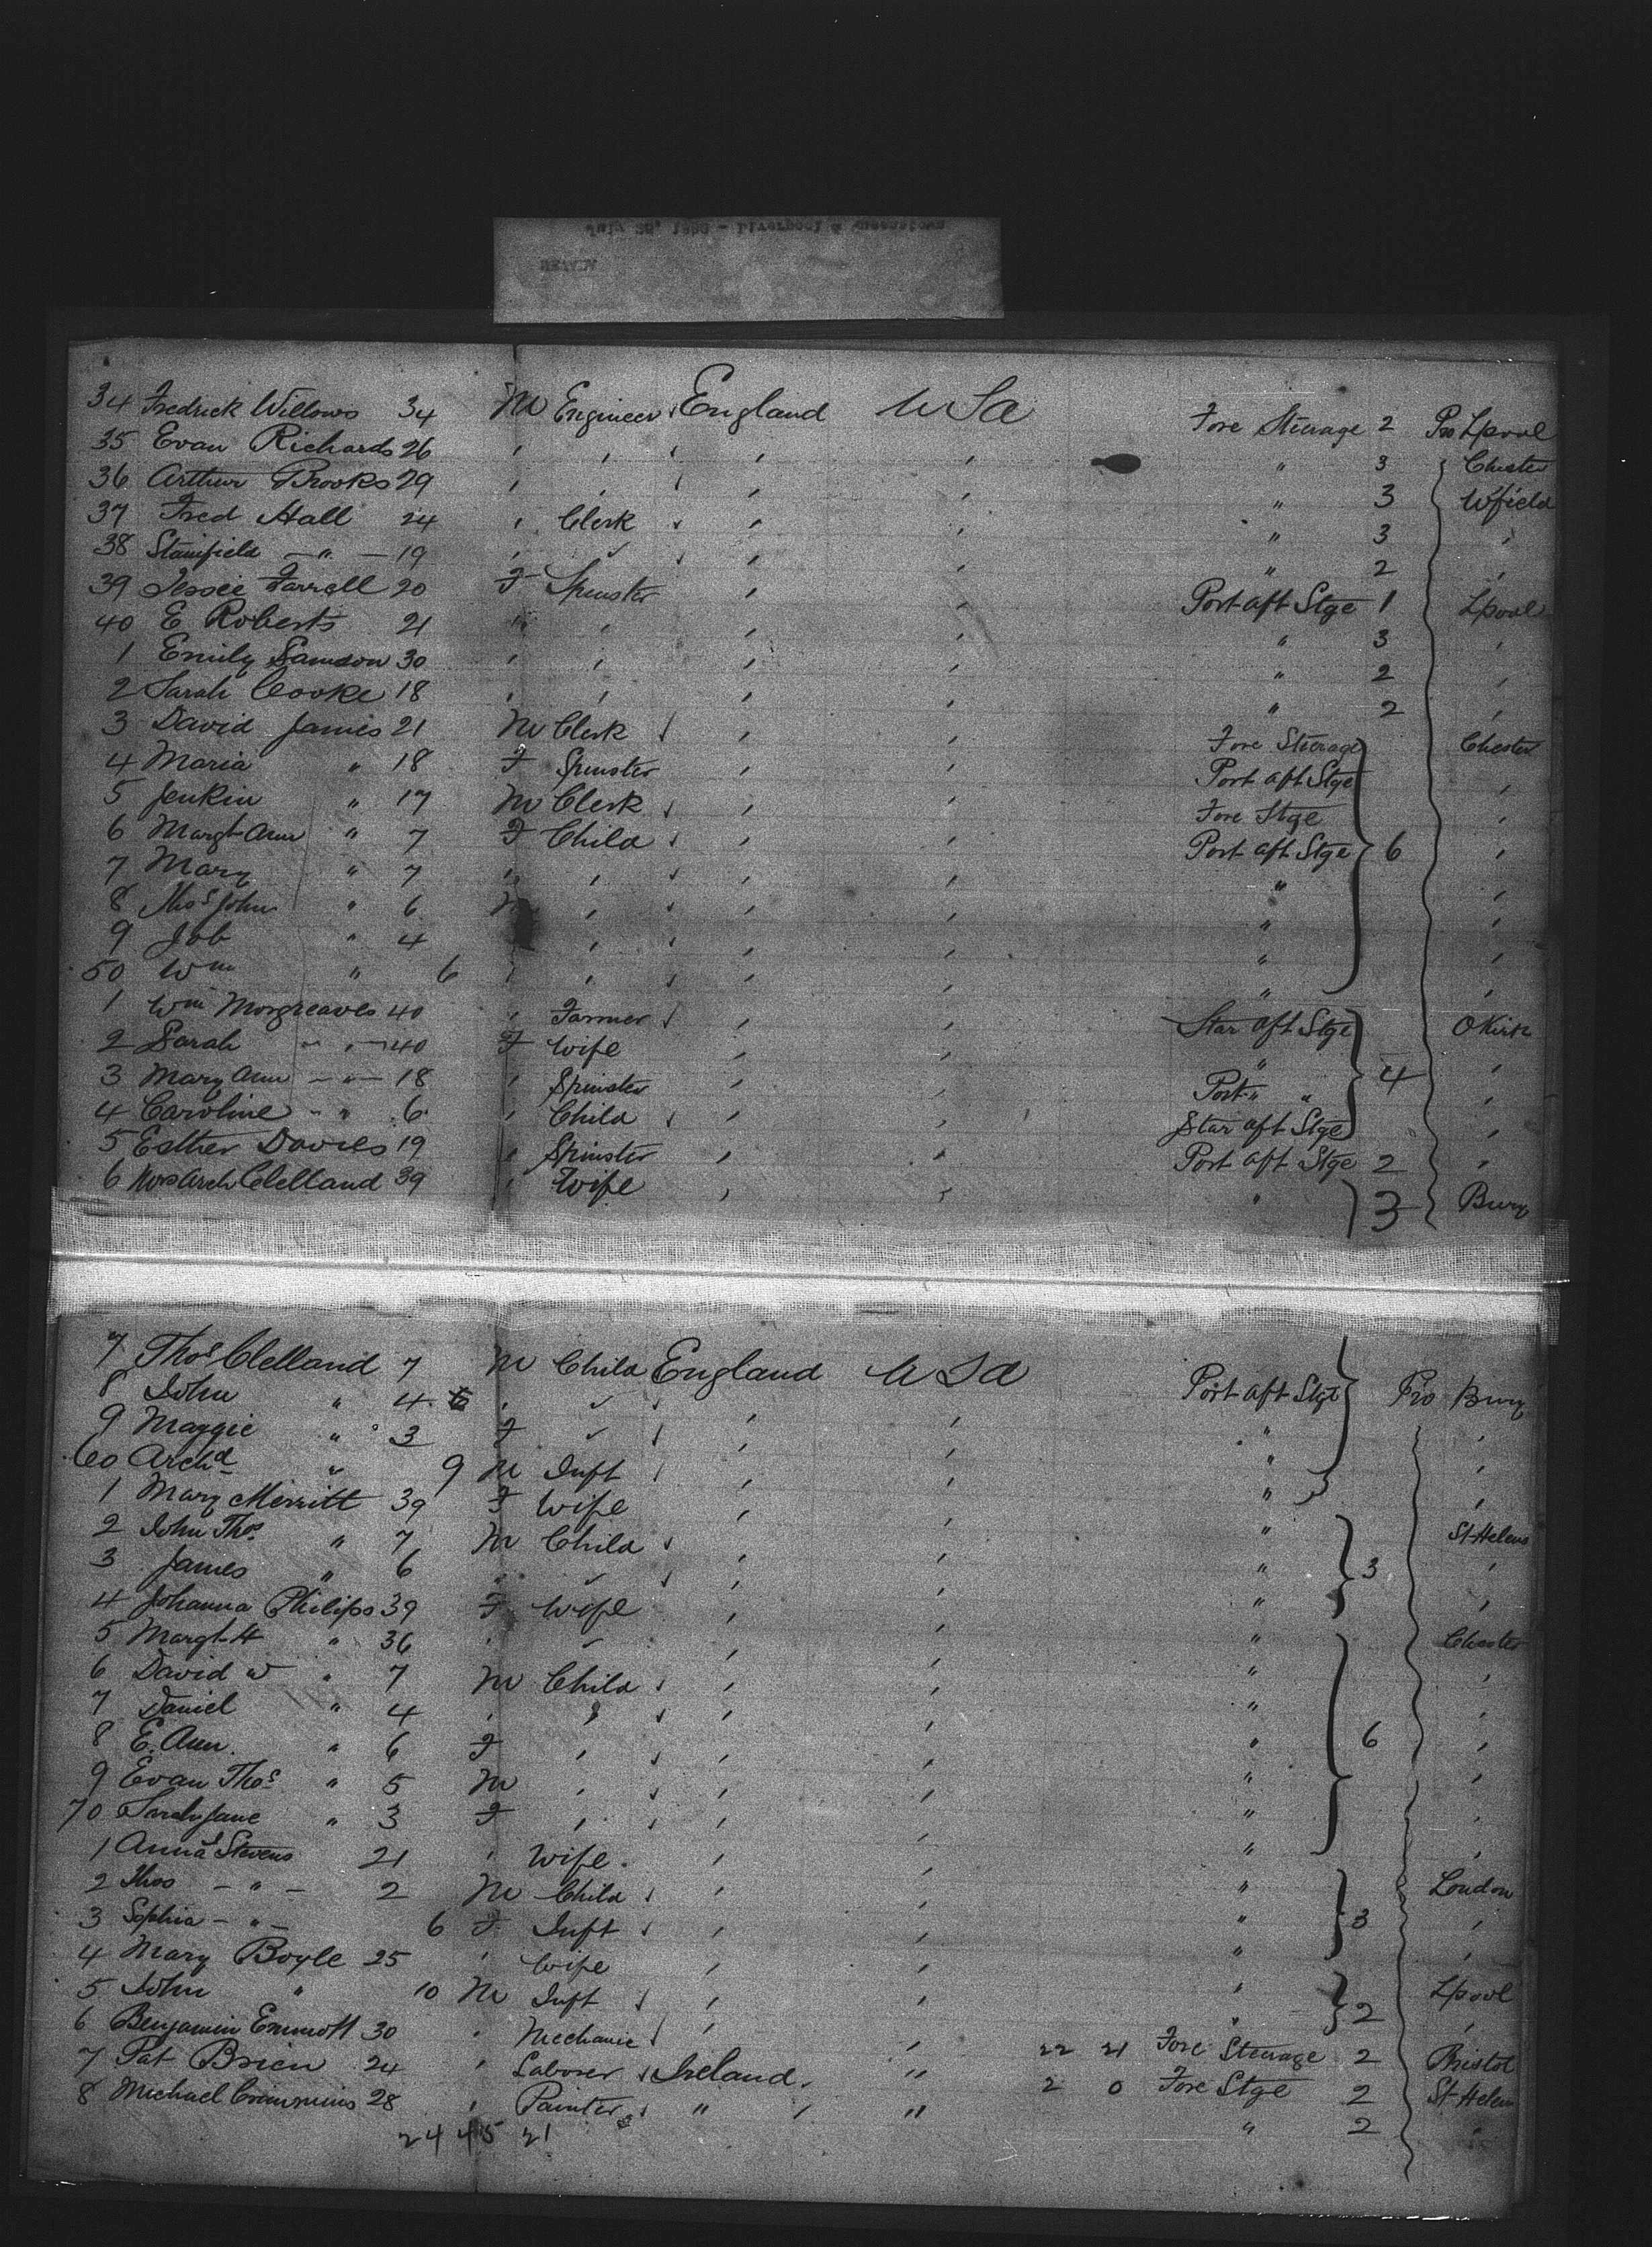 34 Fredrick Willows 34 M Engineer England U Sa Fore Steerage 2 Pro Lpool
35 Evan Richards 26 , , , , " 3 Chester
36 Arthur Brooks 29 , , , , " 3 Wfield
37 Fred Hall 24 , Clerk , , " 3 ,
38 Stainfield — " — 19 , , , , " 2 ,
39 Jessie Farrell 20 F Spinster , , Port aft Stge 1 Lpool
40 E Roberts 21 " , , , " 3 ,
1 Emily Samson 30 , , , , " 2 ,
2 Sarah Cooke 18 , , , , " 2 ,
3 David James 21 M Clerk , , Fore Steerage Chester
4 Maria " 18 F Spinster , , Port aft Stge ,
5 Jenkin " 17 M Clerk , , Fore Stge ,
6 Margt Ann " 7 F Child , , Port aft Stge 6 ,
7 Mary " 7 , , , , " ,
8 Thos John " 6 M , , , " ,
9 Job " 4 , , , " ,
50 Wm " 6 , , , , " ,
1 Wm Morgreaves 40 , Farmer , , Star aft Stge O Kirk
2 Sarah " 40 F Wife , , " ,
3 Mary Ann — " — 18 , Spinster , , Port " " 4 ,
4 Caroline - " 6 , Child , , Star aft Stge ,
5 Esther Davies 19 , Spinster , , Port aft Stge 2 ,
6 Mrs Arch Clelland 39 , Wife , , " 3 Bury
7 Thos Clelland 7 M Child England U S a Port aft Stge Pro Bury
8 John " 4 , , , , " ,
9 Maggie " 3 F , , , " ,
60 Archd " 9 M Inft , , " ,
1 Mary Merritt 39 F Wife , , " St Helens
2 John Thos " 7 M Child , , " 3 ,
3 James " 6 " , , , " ,
4 Johanna Philips 39 F Wife , , " Chester
5 Margt H " 36 , , , , " ,
6 David W " 7 M Child , , " ,
7 Daniel " 4 , , , , " 6 ,
8 E. Ann " 6 F , , , " ,
9 Evan Thos " 5 M , , , " ,
70 Sarah Jane " 3 F , , , " ,
1 Anna Stevens 21 , Wife , , " London
2 Thos — " — 2 M Child , , " 3 ,
3 Sophia — " — 6 F Inft , , " ,
4 Mary Boyle 25 , Wife , , " Lpool
5 John " 10 M Inft , , " 2 ,
6 Benjamin Emmott 30 , Mechanic , , 22 21 Fore Steerage 2 Bristol
7 Pat Brien 24 , Laborer Ireland " 2 0 Fore Stge 2 St Helens
8 Michael Crimmins 28 , Painter " , " " 2 "
24 45 21